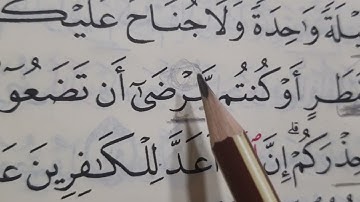 يلَةً وَٰحِدَةً وَلَا جُنَاحَ عَلَيْك
مَطَرٍ أَوْ كُنتُم مَّرْضَىٰٓ أَن تَضَعُوٓ
حِذْرَكُمْ ۗ إِنَّ أَعَدَّ لِلْكَٰفِرِينَ عَ